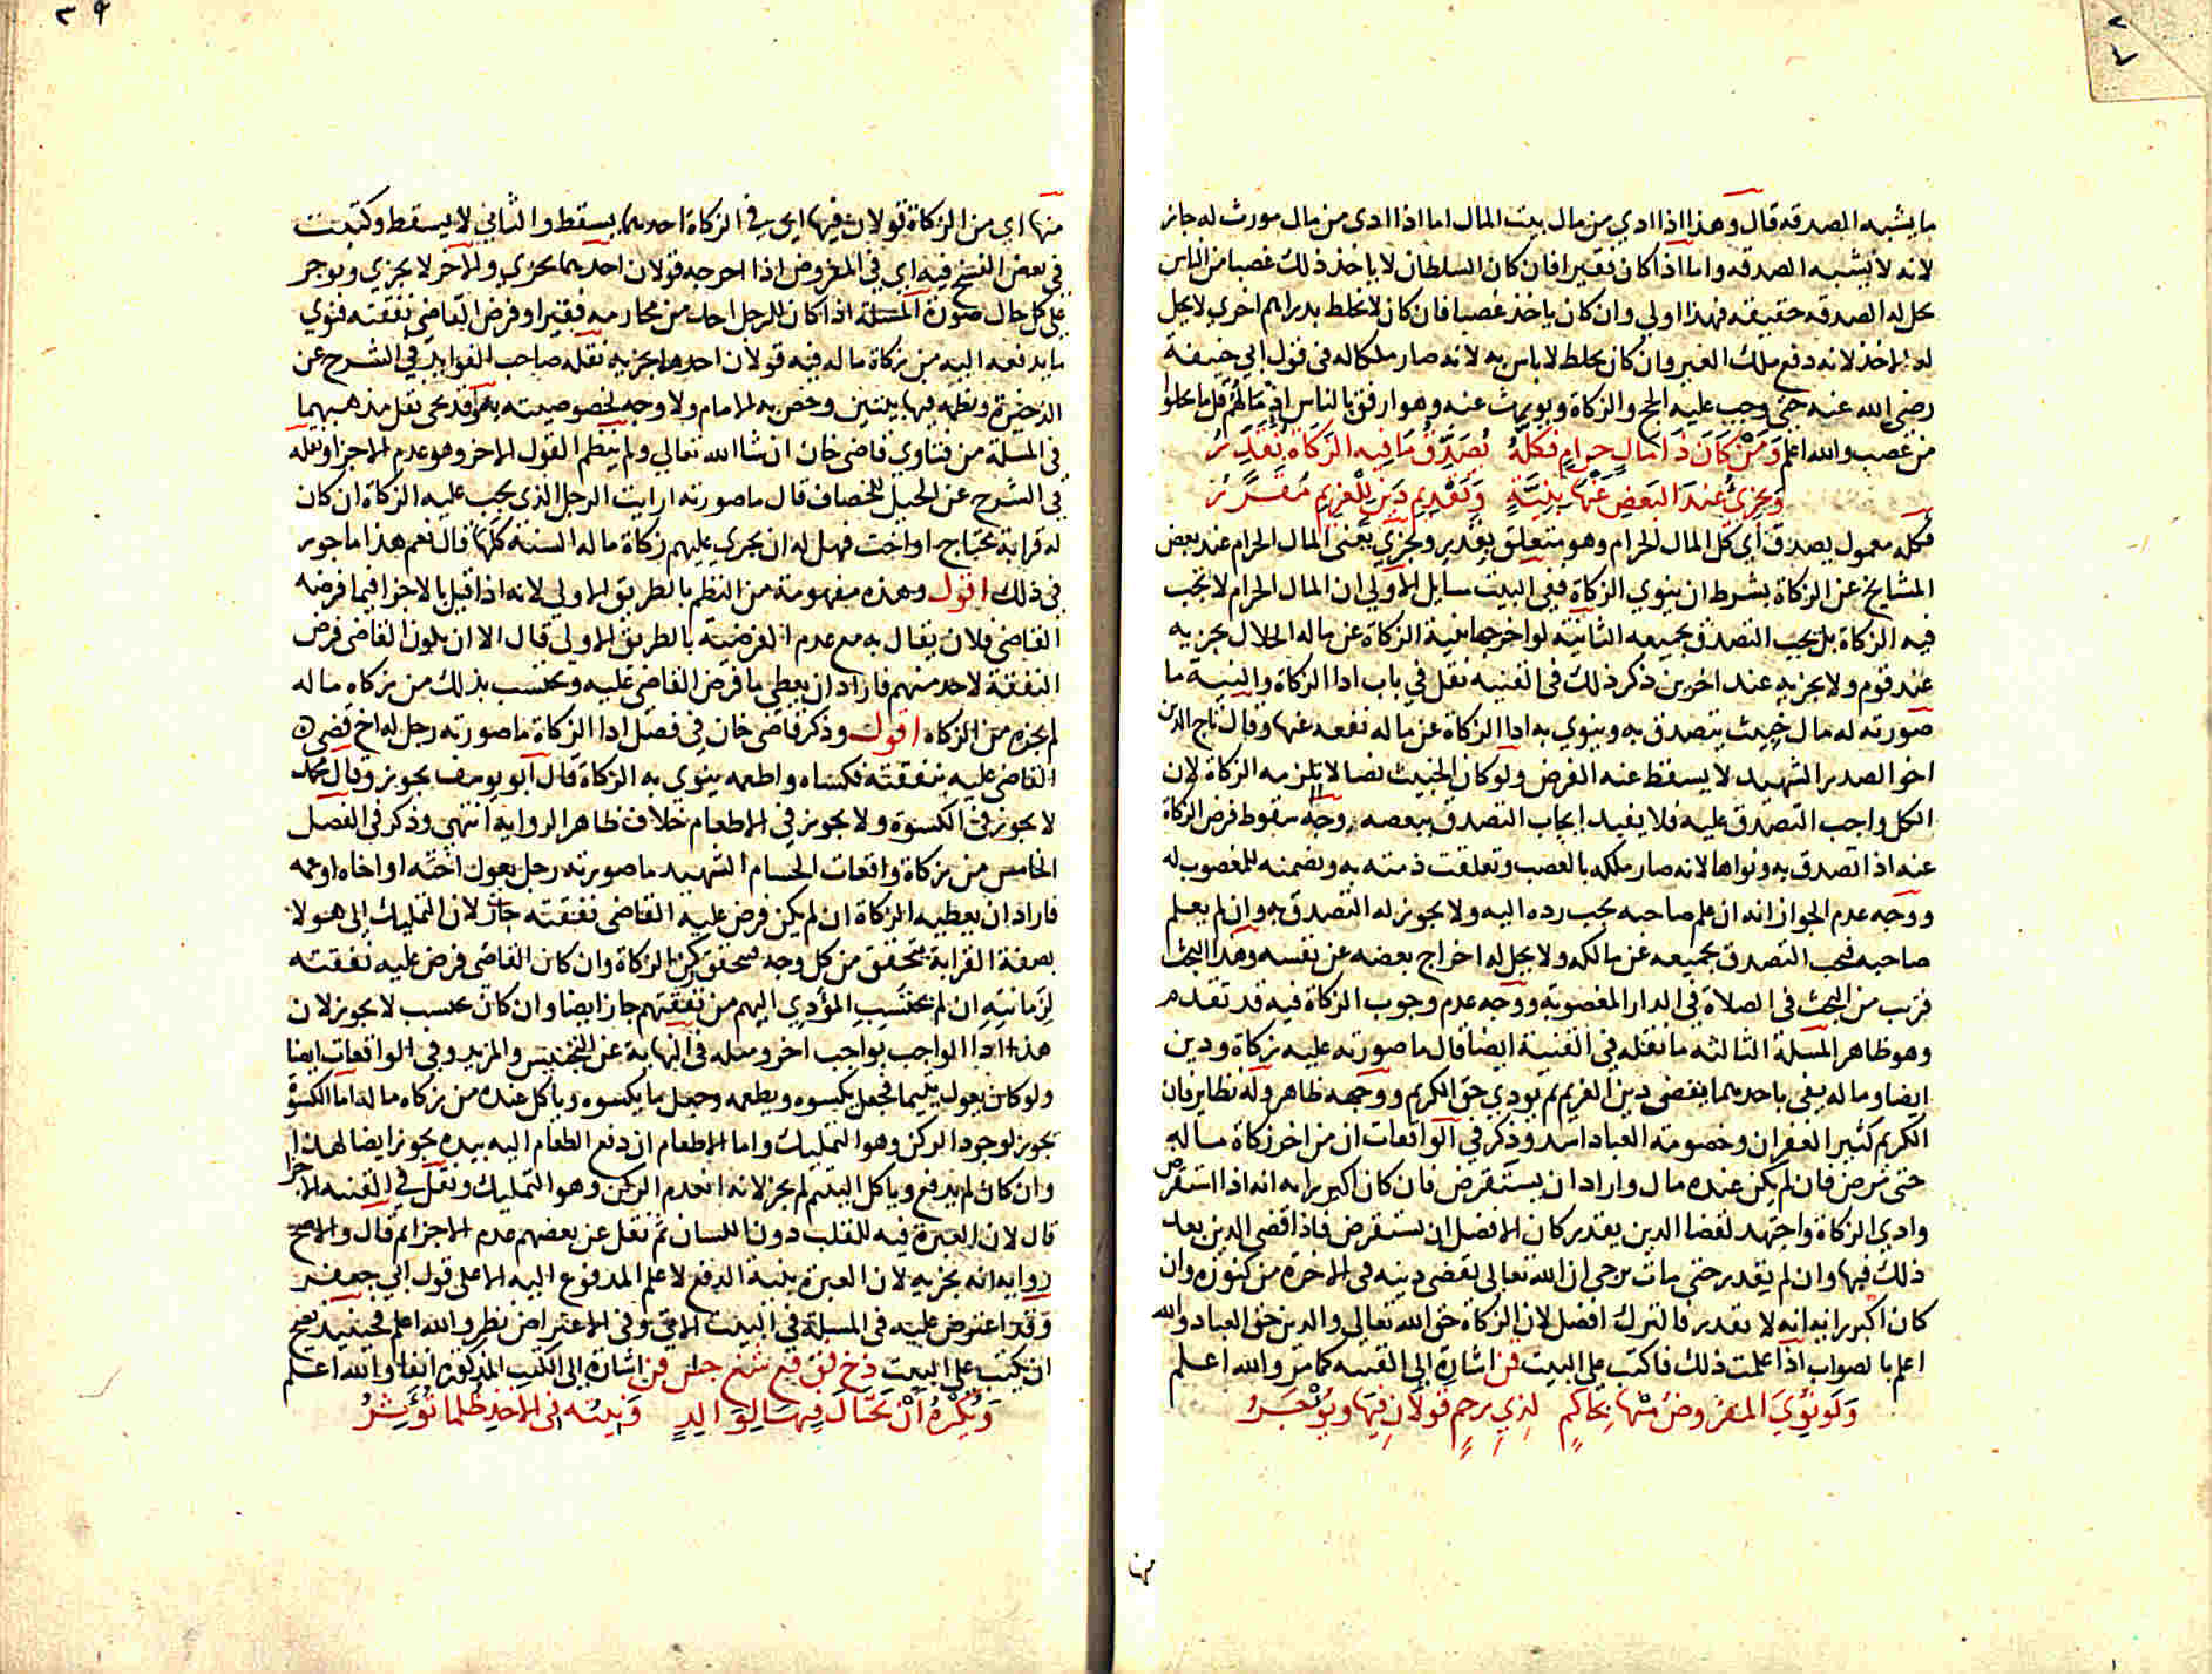 ما يشبه الصدقه قال وهذا اذا ادي من مال بيت المال اما اذا ادى من مال مورث له جاز
لانه لا يشبه الصدقه واما اذا كان فقيرا فان كان السلطان لا ياخذ ذلك غصبا من الناس
يحل له الصدقه حقيقه فهذا اولي وان كان ياخذ غصبا فان كان لا يخلط بدراهم اخري لا يحل
له الاخذ لانه دفع ملك الغير وان كان يخلط لا باس به لانه صار ملكا له في قول ابي حنيفة
رضي الله عنه حتى وجب عليه الحج والزكاة ويورث عنه وهو ارفق بالناس اذ مالهم قل ما يخلوا
من غصب والله اعلم وَمَنْ كَانَ ذَا مَالٍ حرامٍ فكلَّهُ يُصَدِّقُ مَا فيه الزكاة تُقَدَّرُ
وَيجزئُ عندَ البَعضِ عَنْهَا بِنِيَّةٍ وَتَقْدِيم دَينٍ للغريم مُقَرَّرُ
فكله معمول يصدق اي كل المال الحرام وهو متعلق بقدير ويجزي يعنى المال الحرام عند بعض
المشايخ عن الزكاة بشرط ان ينوي الزكاة ففي البيت مسايل الاولي ان المال الحرام لا تجب
فيه الزكاة بل يجب التصدق بجميعه الثانية لو اخرجها بنية الزكاة عن ماله الحلال يجزيه
عند قوم ولا يجزيه عند اخرين ذكر ذلك في القنيه نقل في باب ادا الزكاة والنية ما
صورته له مال خبيث يتصدق به وينوي به ادا الزكاة عن ماله نفعه عنها وقال تاج الدين
اخو الصدر الشهيد لا يسقط عنه الفرض ولو كان الخبيث نصابا لا يلزمه الزكاة لان
الكل واجب التصدق عليه فلا يفيد ايجاب التصدق ببعضه وجه سقوط فرض الزكاة
عنه اذا تصدق به ونواها لانه صار ملكه بالغصب وتعلقت ذمته به ونضمنه للمغصوب له
ووجه عدم الجواز انه ان علم صاحبه يجب رده اليه ولا يجوز له التصدق به وان لم يعلم
صاحبه فيجب التصدق بجميعه عن مالكه ولا يحل له اخراج بعضه عن نفسه وهذا البحث
قريب من البحث في الصلاة في الدار المغصوبه ووجه عدم وجوب الزكاة فيه قد تقدم
وهو ظاهر المسلة الثالثه ما نقله في القنية ايضا قال ما صورته عليه زكاة ودين
ايضا وماله يفي باحدهما يقضى دين الغريم ثم يودي حق الكريم ووجهه ظاهر وله نظاير فان
الكريم كثير الغفران وخصومة العباد اشد وذكر في الواقعات ان من اخر زكاة ماله
حتى مرض فان لم يكن عنده مال واراد ان يستقرض فان كان اكبر رايه انه اذا استقرض
وادي الزكاة واجتهد لقضا الدين يقدر كان الافضل ان يستقرض فاذا قضى الدين بعد
ذلك فبها وان لم يقدر حتى مات يرجى ان الله تعالى يقضى دينه في الاخرة من كنوزه وان
كان اكبر رايه انه لا يقدر فالترك افضل لان الزكاة حق الله تعالى والدين حق العباد والله
اعلم بالصواب اذا علمت ذلك فاكتب على البيت قن اشارة الى القنيه كما مر والله اعلم
وَلَو نُوِيَ المفروضُ مِنْهَا بِحَاكِمٍ لِذِي رحِمٍ قولَانِ فيهَا ويُؤْجَرُ
منها
منها اى من الزكاة قولان فيها اي في الزكاة احدهما يسقط والثاني لا يسقط وكتبت
في بعض النسخ فيه اي في المفروض اذا اخرجه قولان احدهما يجزي والاخر لا يجزي ويوجر
على كل حال صورة المسئلة اذا كان للرجل احد من محارمه فقيرا وفرض القاضي نفقته فنوي
ما يدفعه اليه من زكاة ماله فيه قولان احدهما يجزيه نقله صاحب الفوايد في الشرح عن
الذخيرة ونظمه فيها بيتين وخص به الامام ولا وجه لخصوصيته به وقد يحى نقل مذهبيهما
في المسلة من فتاوي قاضى خان ان شا الله تعالي ولم ينظم القول الاخر وهو عدم الاجزا ونقله
في الشرح عن الحيل للخصاف قال ما صورته ارايت الرجل الذي يجب عليه الزكاة ان كان
له قرابة محتاج او اخت فهل له ان يجري عليهم زكاة ماله السنة كلها قال نعم هذا ماجور
في ذلك اقول وهذه مفهومة من النظم بالطريق الاولي لانه اذا قيل بالاجزا فيما فرضه
القاضي فلان يقال به مع عدم الفرضية بالطريق الاولي قال الا ان يكون القاضي فرض
النفقة لاحد منهم فاراد ان يعطي ما فرض القاضي عليه ويحتسب بذلك من زكاه ماله
لم يجزه من الزكاه اقول وذكر قاضى خان في فصل ادا الزكاة ما صورته رجل له اخ قضى
القاضى عليه بنفقته فكساه واطعمه ينوى به الزكاة قال ابو يوسف يجوز وقال محمد
لا يجوز في الكسوة ولا يجوز في الاطعام خلاف ظاهر الرواية انتهى وذكر في الفصل
الخامس من زكاة واقعات الحسام الشهيد ما صورته رجل يعول اخته او اخاه او عمه
فاراد ان يعطيه الزكاة ان لم يكن فرض عليه القاضى نفقته جاز لان التمليك الى هولا
بصفة القرابة يتحقق من كل وجه فيتحقق ركن الزكاة وان كان القاضي فرض عليه نفقته
لِزمانتِهِ ان لم يحتسِبِ المؤدي اليهم من نفقتهم جاز ايضا وان كان يحتسب لا يجوز لان
هذا ادا الواجب بواجب اخر ومثله في النهاية عن التجنيس والمزيد وفي الواقعات ايضا
ولو كان يعول يتيما فجعل يكسوه ويطعمه وجعل ما يكسوه وياكل عنده من زكاه ماله اما الكسوة
يجوز لوجود الركن وهو التمليك واما الاطعام ان دفع الطعام اليه بيده يجوز ايضا لهذا
وان كان لم يدفع وياكل اليتيم لم يجز لانه انعدم الركن وهو التمليك ونقل في القنيه الاجزا
قال لان العبرة فيه للقلب دون اللسان ثم نقل عن بعضهم عدم الاجزا ثم قال والاصح
رواية انه يجزيه لان العبرة بنية الدفع لا علم المدفوع اليه الا على قول ابي جعفر
وقد اعترض عليه في المسلة في البيت الاتي وفي الاعتراض نظر والله اعلم فحينيذ يصح
ان يكتب على البيت ذخ فق قع شخ جلس قن اشارة إلى الكتب المذكوره انفا والله اعلم
وَيُكرهُ أَنْ يَحتَالَ فِيهَا لِوَالِدٍ وَنِيَّتُه في الاخذِ ظُلما تُؤَثِّرُ